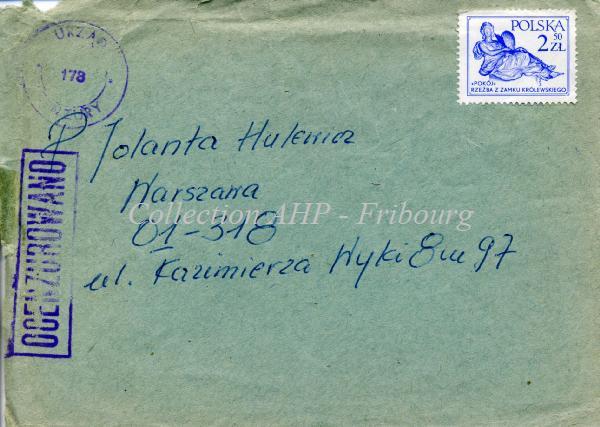 URZĄD
178
POLSKA
2 50 ZŁ
«POKÓJ»
RZEŹBA Z ZAMKU KRÓLEWSKIEGO
OCENZUROWANO
P Jolanta Hulewicz
Warszawa
01-318
ul. Kazimierza Wyki 8 m 97
Collection AHP - Fribourg